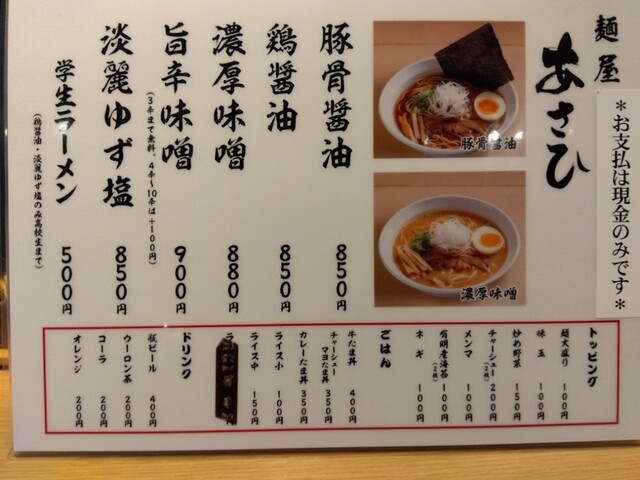 麺屋
あさひ
＊お支払は現金のみです＊
豚骨醤油
濃厚味噌
豚骨醤油 850円
鶏醤油 850円
濃厚味噌 880円
旨辛味噌 900円
(3辛まで無料、4辛〜10辛は+100円)
淡麗ゆず塩 850円
学生ラーメン 500円
(鶏醤油・淡麗ゆず塩のみ高校生まで)
トッピング
麺大盛り 100円
味玉 100円
炒め野菜 150円
チャーシュー(2枚) 200円
メンマ 100円
有明産海苔(2枚) 100円
ネギ 100円
ごはん
牛たま丼 400円
チャーシューマヨたま丼 350円
カレーたま丼 350円
ライス小 100円
ライス中 150円
ドリンク
瓶ビール 400円
ウーロン茶 200円
コーラ 200円
オレンジ 200円